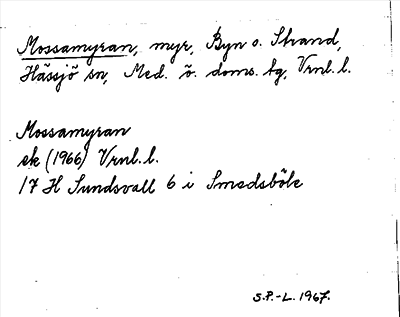 Mossamyran, myr, Byn o. Strand,
Hässjö sn, Med. ö. doms. tg, Vrnl. l.
Mossamyran
ek (1966) Vrnl. l.
17 H Sundsvall 6 i Smedsböle
S.P.-L. 1967.